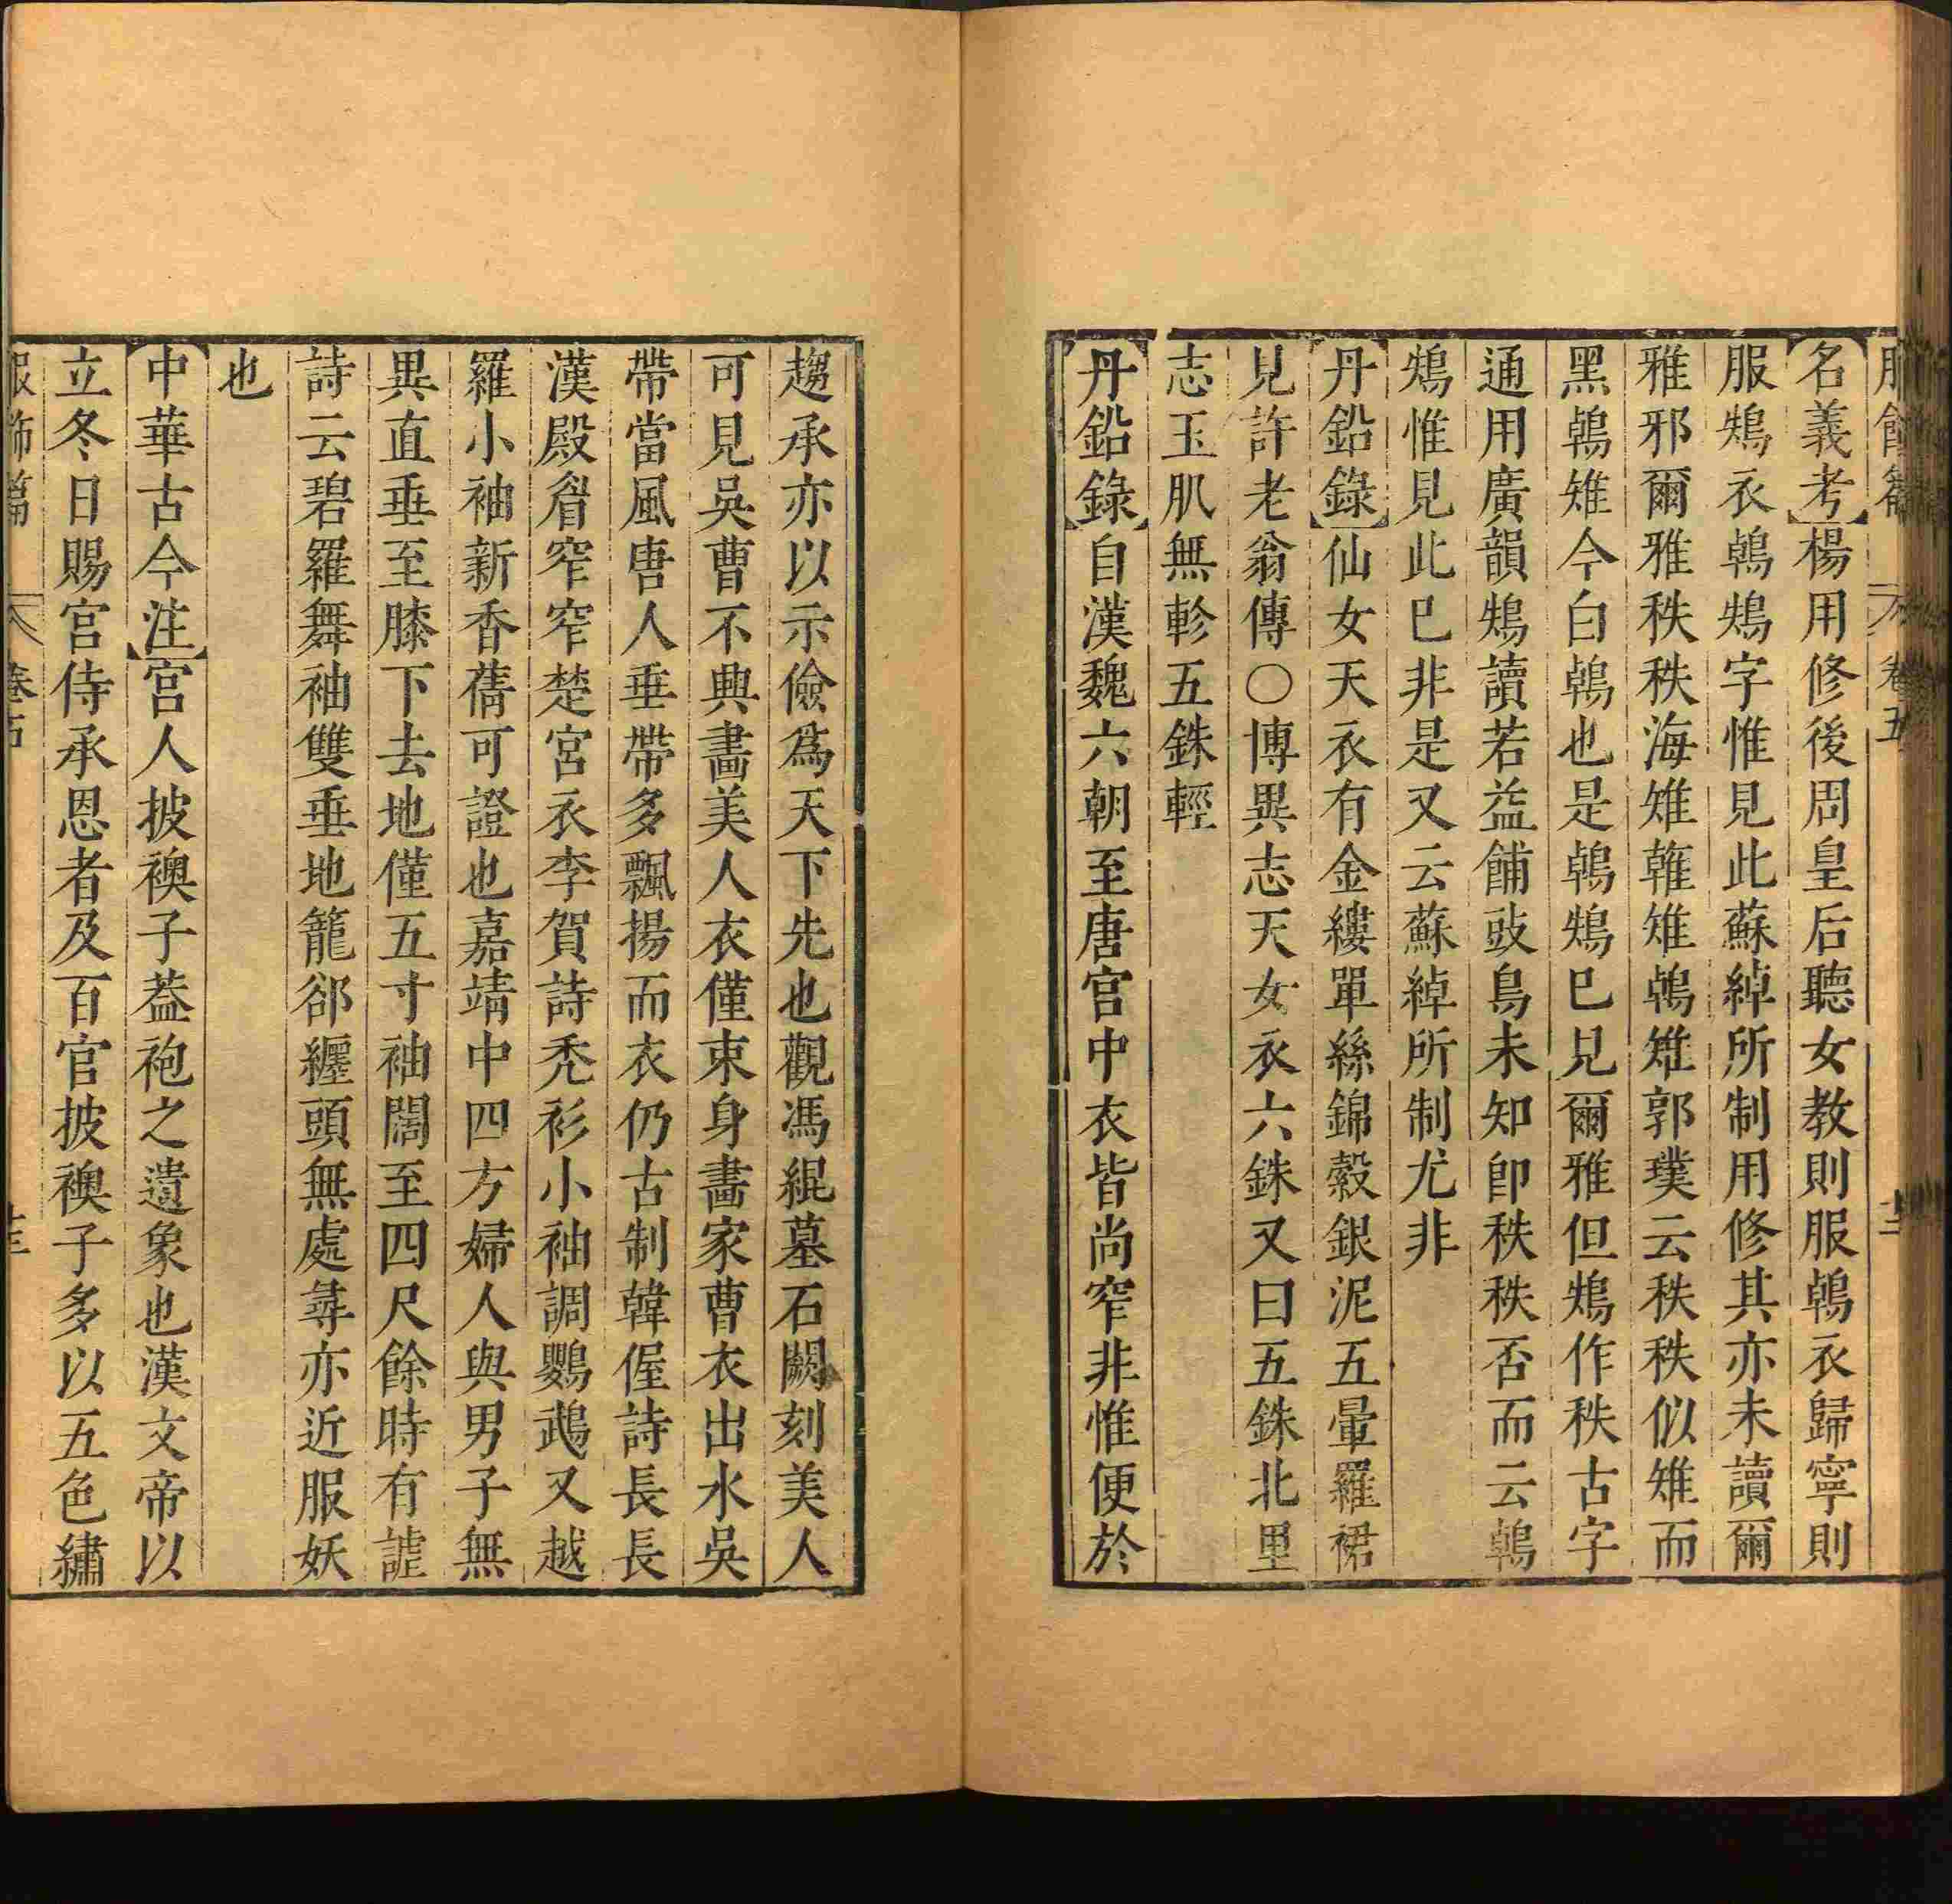 服飾篇 卷五 十二
名義考楊用修後周皇后聽女教則服鶾衣歸寧則
服鴩衣鶾鴩字惟見此蘇綽所制用修其亦未讀爾
雅邪爾雅秩秩海雉雗雉鶾雉郭璞云秩秩似雉而
黑鶾雉今白鶾也是鶾鴩巳見爾雅但鴩作秩古字
通用廣韻鴩讀若益餔豉鳥未知卽秩秩否而云鶾
鴩惟見此巳非是又云蘇綽所制尤非
丹鉛錄仙女天衣有金縷單絲錦縠銀泥五暈羅裙
見許老翁傳○博異志天女衣六銖又曰五銖北里
志玉肌無軫五銖輕
丹鉛錄自漢魏六朝至唐宮中衣皆尚窄非惟便於
趨承亦以示儉爲天下先也觀馮緄墓石闕刻美人
可見吳曹不興畫美人衣僅束身畫家曹衣出水吳
帶當風唐人垂帶多飄揚而衣仍古制韓偓詩長長
漢殿眉窄窄楚宮衣李賀詩禿衫小袖調鸚鵡又越
羅小袖新香蒨可證也嘉靖中四方婦人與男子無
異直垂至膝下去地僅五寸袖闊至四尺餘時有謔
詩云碧羅舞袖雙垂地籠郤纒頭無處尋亦近服妖
也
中華古今注宮人披襖子葢袍之遺象也漢文帝以
立冬日賜宮侍承恩者及百官披襖子多以五色繡
服飾篇 卷五 十三